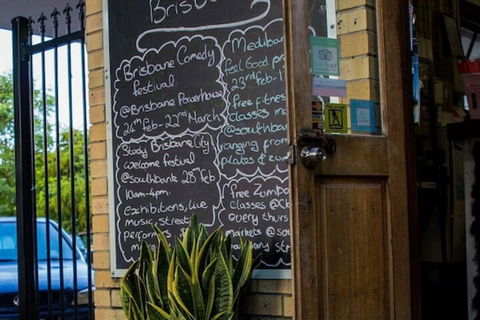 Brisb
Brisbane Comedy
festival
@Brisbane Powerhouse
24th Feb - 22nd March
Study Brisbane City
welcome festival
@southbank 28th Feb
10am-4pm.
exhibitions, live
music, street
performers
Medibank
feel Good
23rd Feb - 1
free fitness
classes
@southbank
ranging from
pilates & zum
Free Zumba
classes @
every thurs
markets @ sou